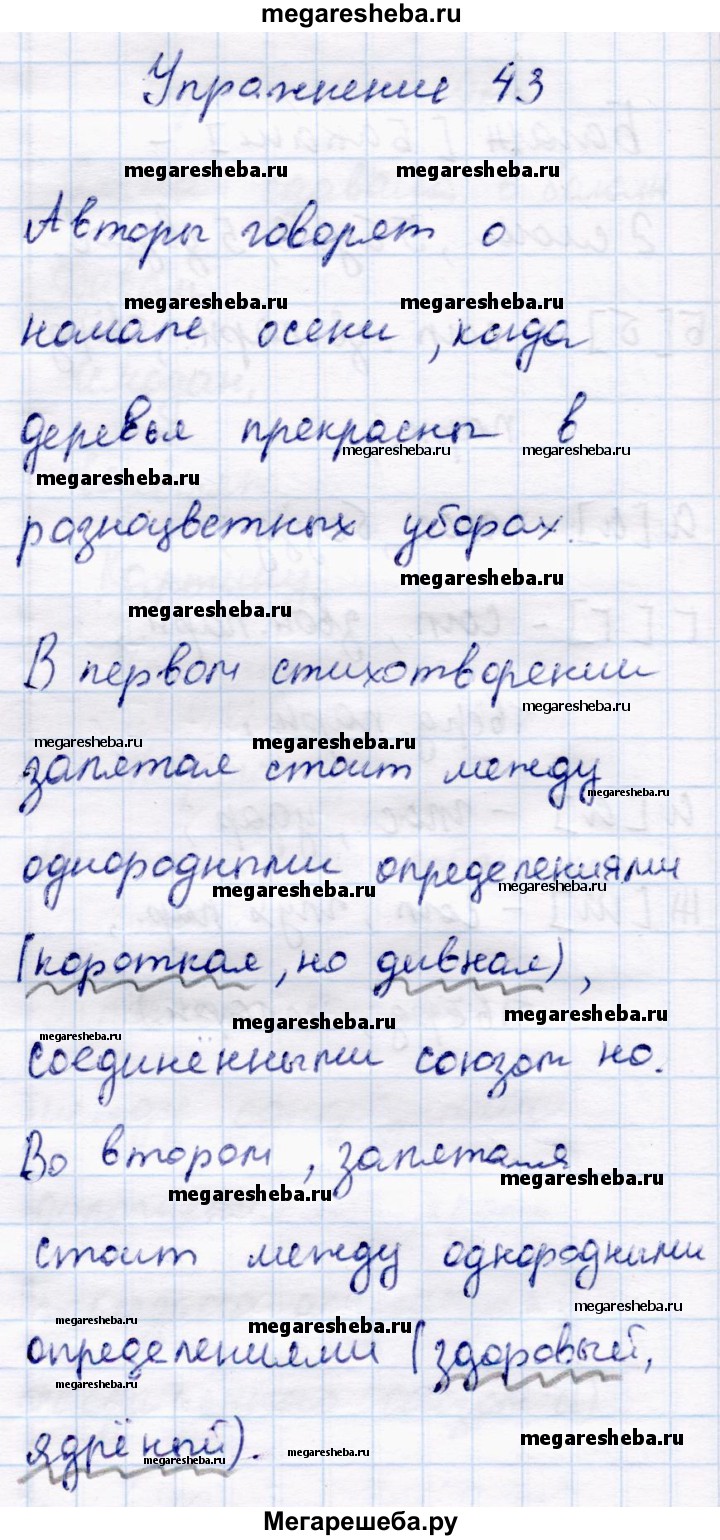 megaresheba.ru
Упражнение 43
megaresheba.ru megaresheba.ru
Авторы говорят о
megaresheba.ru megaresheba.ru
начале осени, когда
деревья прекрасны в
megaresheba.ru megaresheba.ru
megaresheba.ru
разноцветных уборах.
megaresheba.ru
megaresheba.ru
В первом стихотворении
megaresheba.ru
megaresheba.ru megaresheba.ru
запятая стоит между
megaresheba.ru
однородными определениями
megaresheba.ru megaresheba.ru
(короткая, но дивная),
megaresheba.ru megaresheba.ru
megaresheba.ru
соединёнными союзом но.
Во втором, запятая
megaresheba.ru megaresheba.ru
стоит между однородными
megaresheba.ru
megaresheba.ru megaresheba.ru
определениями (здоровый,
megaresheba.ru
ядрёный).
megaresheba.ru megaresheba.ru megaresheba.ru
Мегарешеба.ру